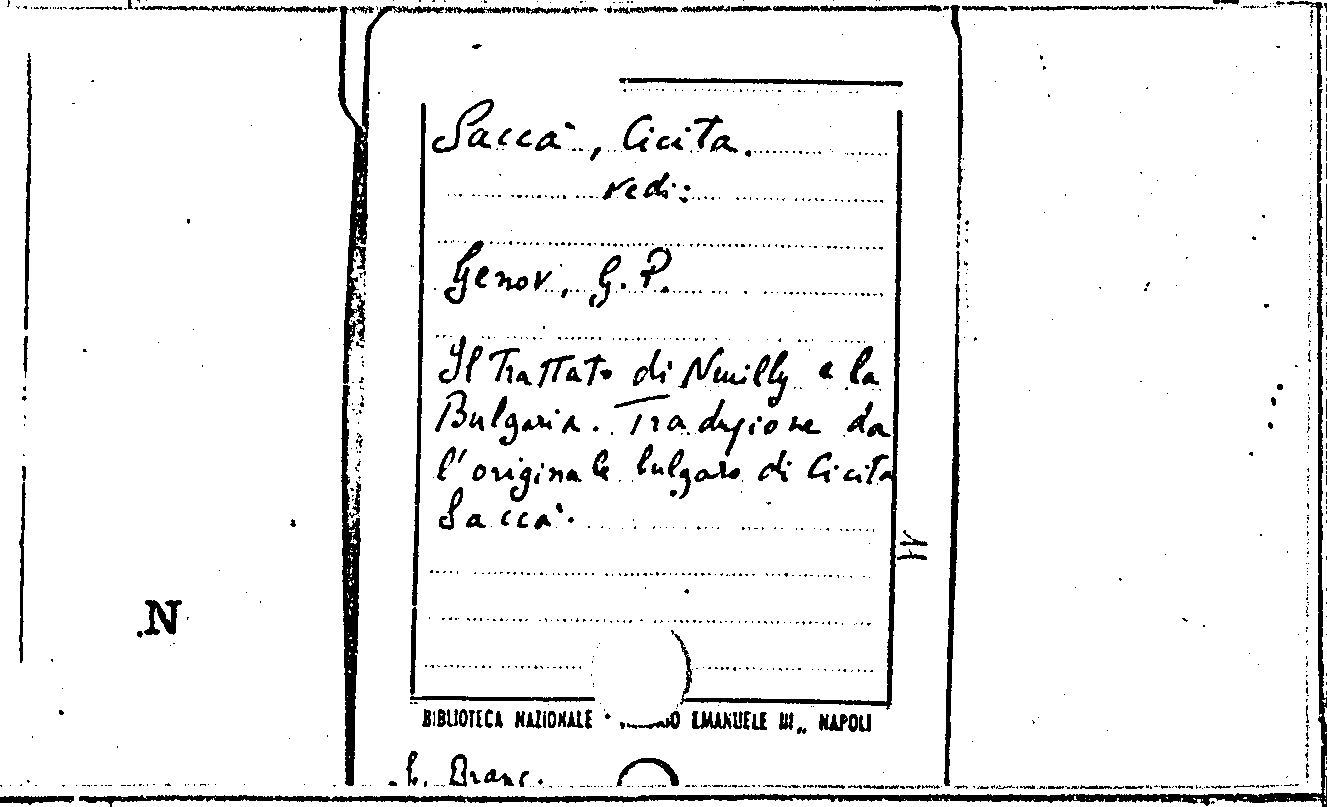 Saccà, Cicita.
Vedi:
Genov, G. P.
Il Trattato di Neuilly e la
Bulgaria. Traduzione da
l'originale bulgaro di Cicita
Saccà.
11
.N
BIBLIOTECA NAZIONALE EMANUELE III„ NAPOLI
Branc.